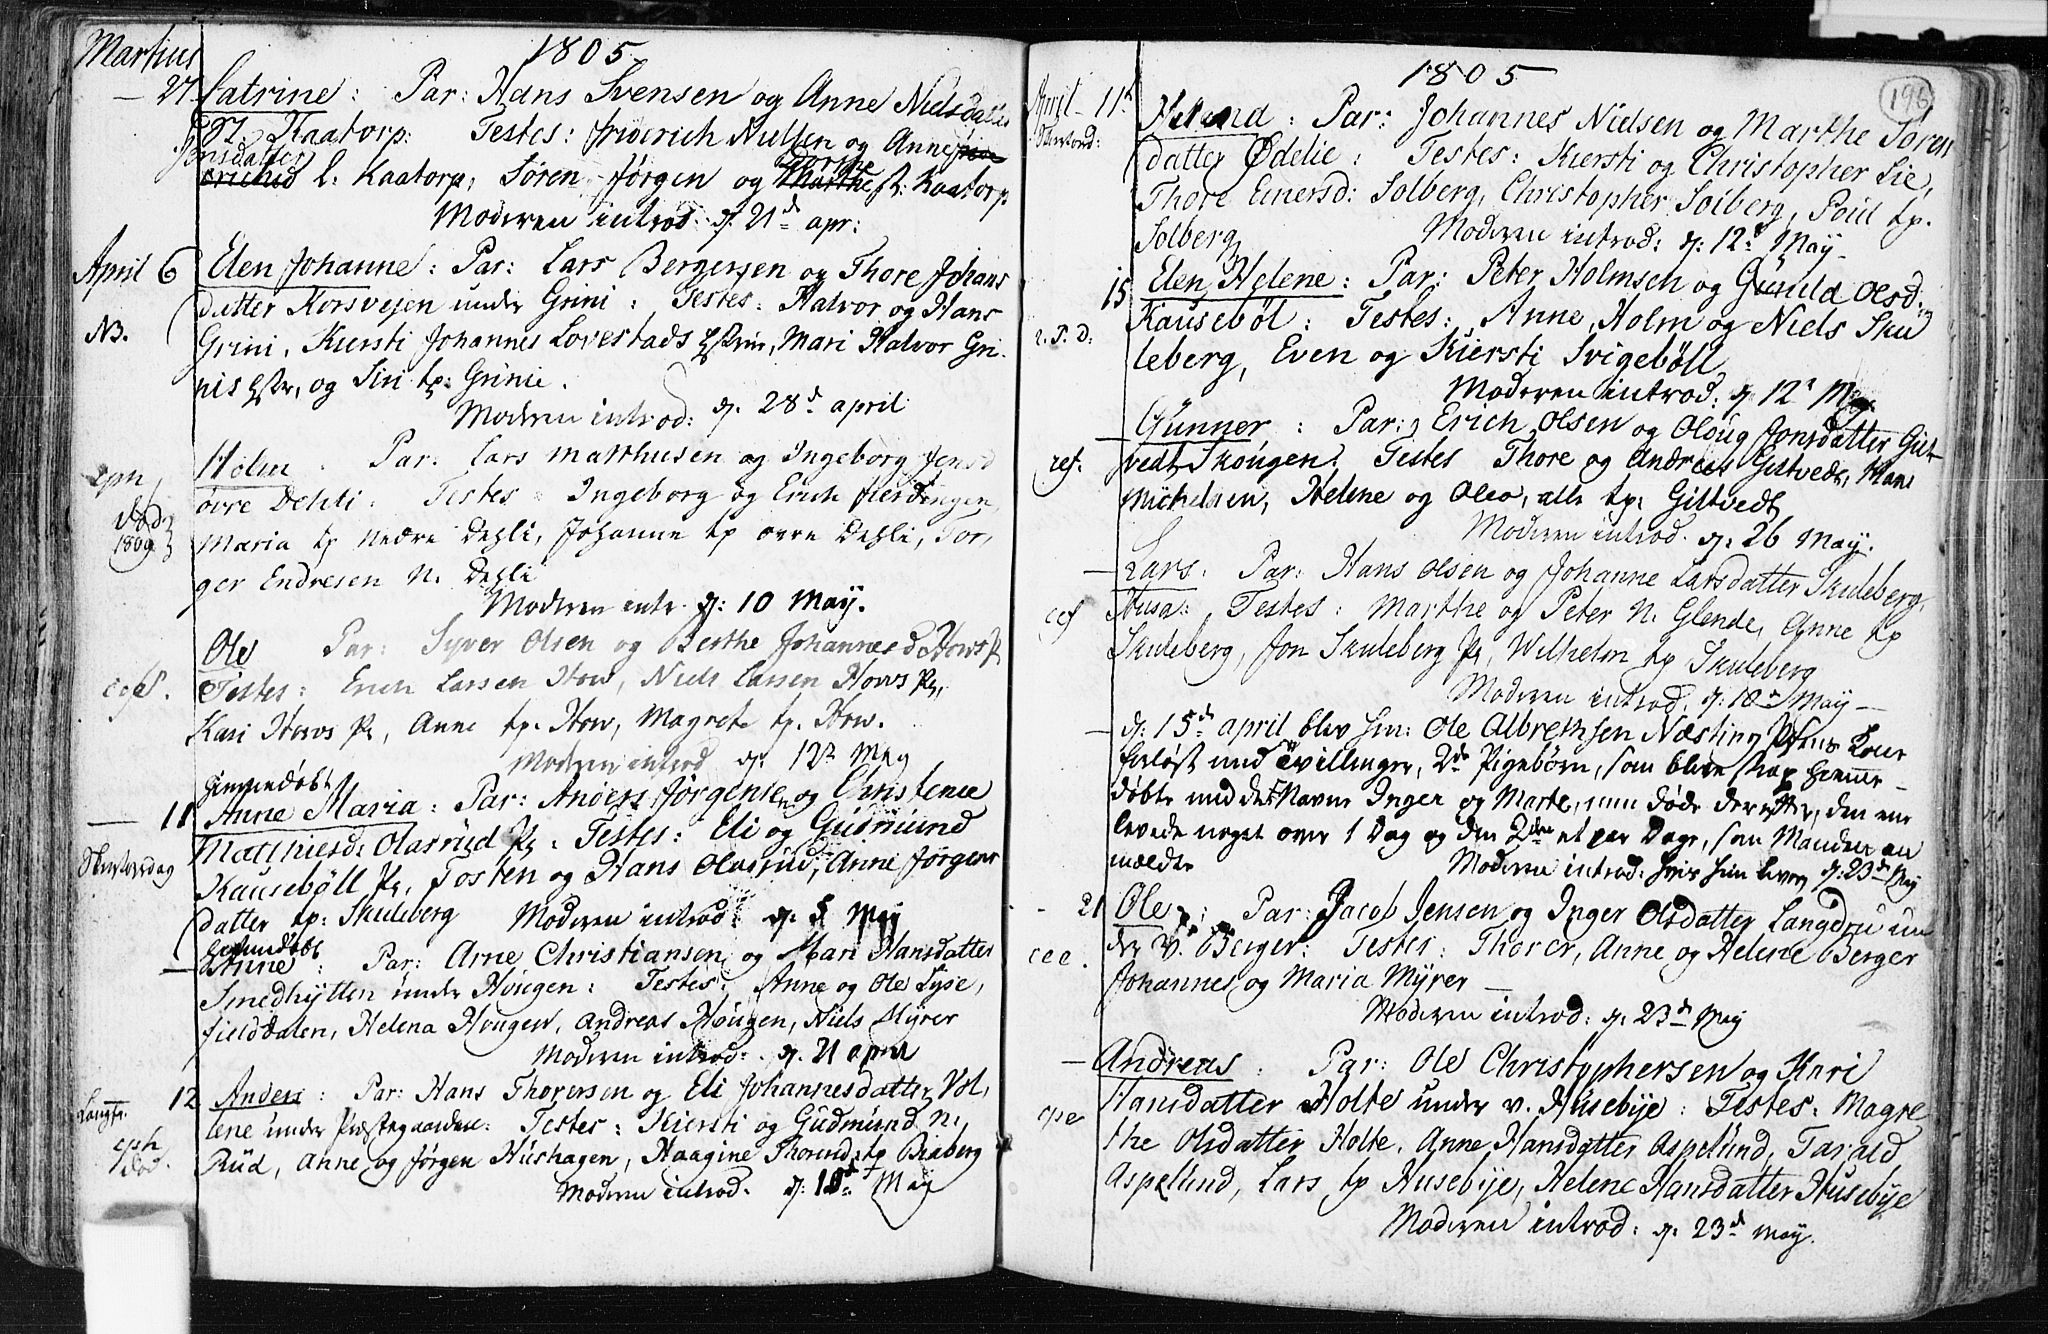 1805.
Martius
27 Catrine: Par: Hans Svensen og Anne Nielsdatter
St. Kaatorp: Testes: friderich Nielsen og Anne
Jensdatter l: Kaatorp, Søren Jørgen og Dorthe st: Kaatorp
Moderen introd: d: 21d apr:
April 6 Elen Johanne: Par: Lars Bergersen og Thore Johans
datter Korsvejen under Grini: Testes: Halvor og Hans
NB. Grini, Kiersti Johannes Lovestads Hstrin, Mari Halvor Gri-
nis Hstr, og Siri tp: Grinie.
Moderen introd: d: 28d april
Holm. Par: Lars Matthiesen og Ingeborg Jensd
øvre Dehli: Testes: Ingeborg og Erich fierdingen,
død 1809 Maria tp nedre Dehli, Johanne tp øvre Dehli, Tor,
ger Endresen N. Dehli
Moderen intr. d: 10 May.
Ole Par: Syver Olsen og Berthe Johannesd Hows Pl
Testes: Erich Larsen How, Niels Larsen Hows Pl,
Kari Hows Pl, Anne tp. How, Magrete tp. How.
Moderen introd d: 12te May
hjemmedøbt
11 Anne Maria: Par: Anders Jørgensen og Christence
Matthiesd: Olasrud Pl: Testes: Eli og Gudmund
Skiertorsdag Kausebøll Pl, Tosten og Hans Olasrud, Anne Jørgens
datter tp: Skuleberg Moderen introd: d: 5 May
hjemmedøbt
— Anne: Par: Arne Christiansen og Mari Hansdatter
Smedhytten under Haugen: Testes: Anne og Ole Lyse,
fielddalen, Helena Hougen, Andreas Hougen, Niels Myrer
Moderen introd: d. 21 april
Langfr. 12 Anders: Par: Hans Thorersen og Eli Johannesdatter Vol,
lene under Præstegaarden: Testes: Kiersti og Gudmund N.
død. Rud, Anne og Jørgen Hushagen, Haagine Thorersd tp Biaberg
Moderen introd. d: 19d May
1805
196
April 11te Par: Johannes Nielsen og Marthe Søren
Skiertord: datter Ødelie: Testes: Kiersti og Christopher Lie,
Thore Einersd: Solberg, Christopher Solberg, Poul tp.
Solberg Moderen introd: d: 12te May
15 Elen Helene: Par: Peter Holmsen og Gunild Olsd:
Kausebøl: Testes: Anne Holm og Niels Sku
leberg, Even og Kiersti Svigebøll
Moderen introd: d 12te May
— Gunner: Par: Erich Olsen og Oloug Jonsdatter Gilt
ref. vedt Skougen: Testes Thore og Andreas Giltvedt, Hans
Michelsen, Helene og Olea, alle tp: Giltvedt
Moderen introd. d: 26 May.
— Lars: Par: Hans Olsen og Johanne Larsdatter Skuleberg,
Husa: Testes: Marthe og Peter N. Glende, Anne tp
Skuleberg, Jon Skuleberg Pl, Wilhelm tp Skuleberg
Moderen introd. d: 10de May —
— d: 15d april blev hm: Ole Albrethsen Næsting Pl hans Kone
forløst med Tvillinger, 2de Pigebørn, som bleve strax hjemme-
døbte med det Navne Inger og Marte, men døde derefter, den ene
levede noget over 1 Dag og den 2den et par Dage, som Manden an
meldte Moderen introd: hvis hun lever, d: 23d May
21 Ole: Par: Jacob Jensen og Inger Olsdatter Langdru un
der v. Berger: Testes: Thorer, Anne og Helene Berger
Johannes og Maria Myrer —
Moderen introd: d: 23d May
— Andreas: Par: Ole Christophersen og Kari
Hansdatter Holte under v. Husebye: Testes: Magre
the Olsdatter Holte, Anne Hansdatter Aspelund, Tarald
Aspelund, Lars tp Husebye, Helene Hansdatter Husebye
Moderen introd: d. 23d May.